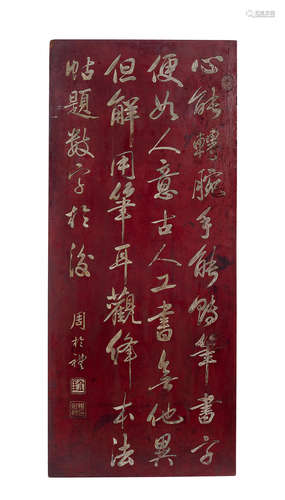 心能轉腕手能轉筆書字
便如人意古人工書無他異
但解用筆耳觀絳本法
帖題數字於後
周於禮